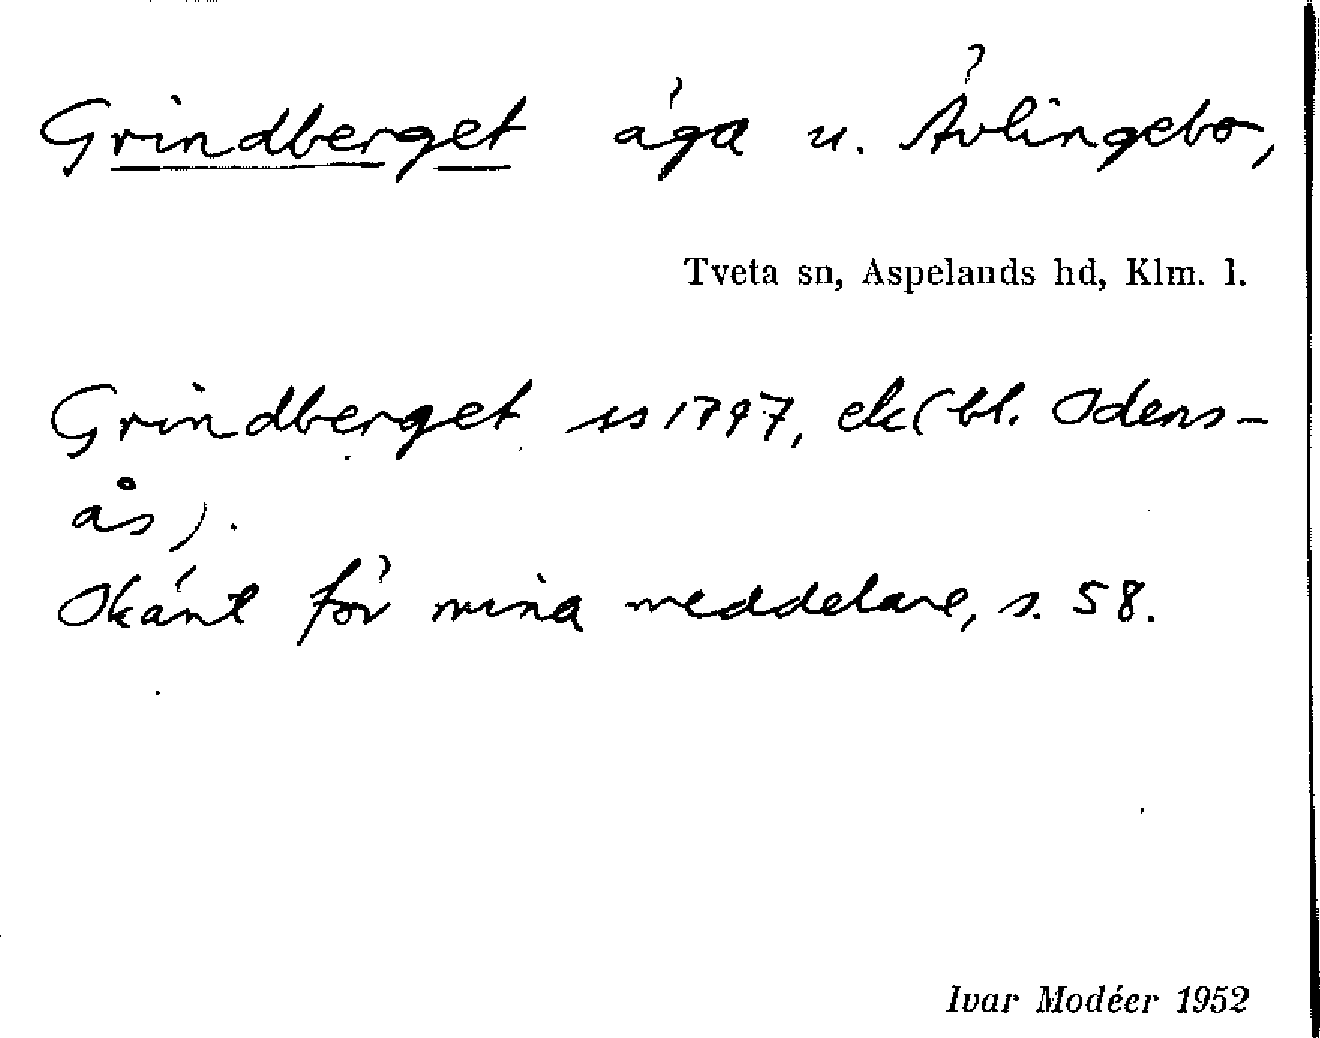 Grindberget äga u. Ävlingebo,
Tveta sn, Aspelands hd, Klm. l.
Grindberget ss 1797, ek (bl. Odens-
ås).
Okänt för mina meddelare, s. 58.
Ivar Modéer 1952